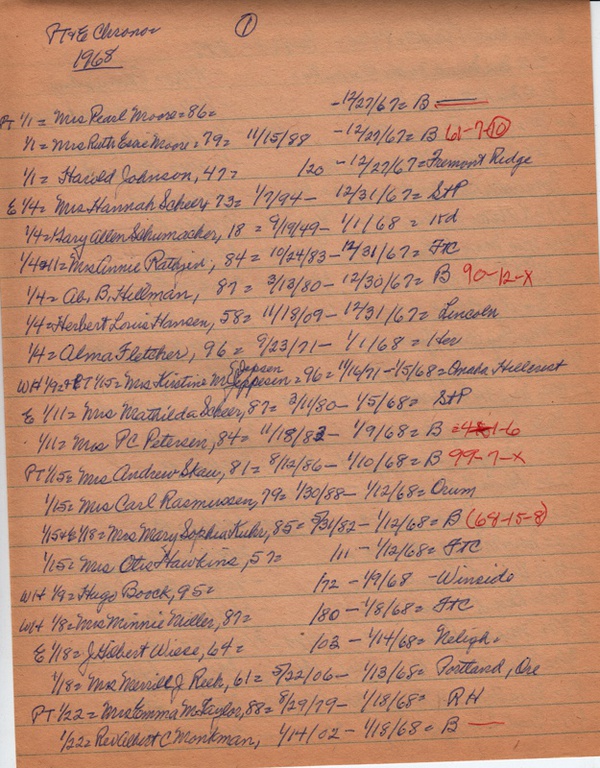 PT & E Chronos ①
1968
PT 1/1 = Mrs Pearl Moore = 86 = - 12/27/67 = B —
1/1 = Mrs Ruth Essie Moore = 79 = 11/15/88 - 12/27/67 = B 61-7-10
1/1 = Harold Johnson, 47 = /20 - 12/27/67 = Fremont Ridge
E 1/4 = Mrs. Hannah Scheer, 73 = 1/7/94 - 12/31/67 = StP
1/4 = Gary Allen Schumacher, 18 = 9/19/49 - 1/1/68 =
1/4 & 11 = Mrs Annie Rathjen, 84 = 10/24/83 - 12/31/67 = FtC
1/4 = Ab. B. Hillman, 87 = 3/13/80 - 12/30/67 = B 90-12-X
1/4 = Herbert Louis Hansen, 58 = 11/18/09 - 12/31/67 = Lincoln
1/4 = Alma Fletcher, 96 = 9/23/71 - 1/1/68 = Her
WH 1/9 = & PT 1/15 = Mrs Kristine M Jepsen Jeppesen = 96 = 11/16/71 - 1/5/68 = Omaha Hillcrest
E 1/11 = Mrs Mathilda Scheer, 87 = 2/11/80 - 1/5/68 = StP
1/11 = Mrs PC Petersen, 84 = 11/18/83 - 1/9/68 = B = 1-6
PT 1/15 = Mrs Andrew Shaw, 81 = 8/12/86 - 1/10/68 = B 99-7-X
1/15 = Mrs Carl Rasmussen, 79 = 1/30/88 - 1/12/68 = Orum
1/15 & E 1/18 = Mrs Mary Sophia Kuhr, 85 = 5/31/82 - 1/12/68 = B (68-15-8)
1/15 = Mrs Otis Hawkins, 57 = /11 - 1/12/68 = FtC
WH 1/9 = Hugo Boock, 95 = /72 - 1/9/68 - Winside
WH 1/8 = Mrs Minnie Miller, 87 = /80 - 1/8/68 = FtC
E 1/18 = J Hilbert Wiese, 64 = /03 - 1/14/68 = Neligh =
1/18 = Mrs Merrill J Reeh, 61 = 5/22/06 - 1/13/68 = Portland, Ore
PT 1/22 = Mrs Emma M Taylor, 88 = 8/29/79 - 1/18/68 = RH
1/22 = Rev Albert C Monkman, 1/14/02 - 1/18/68 = B —